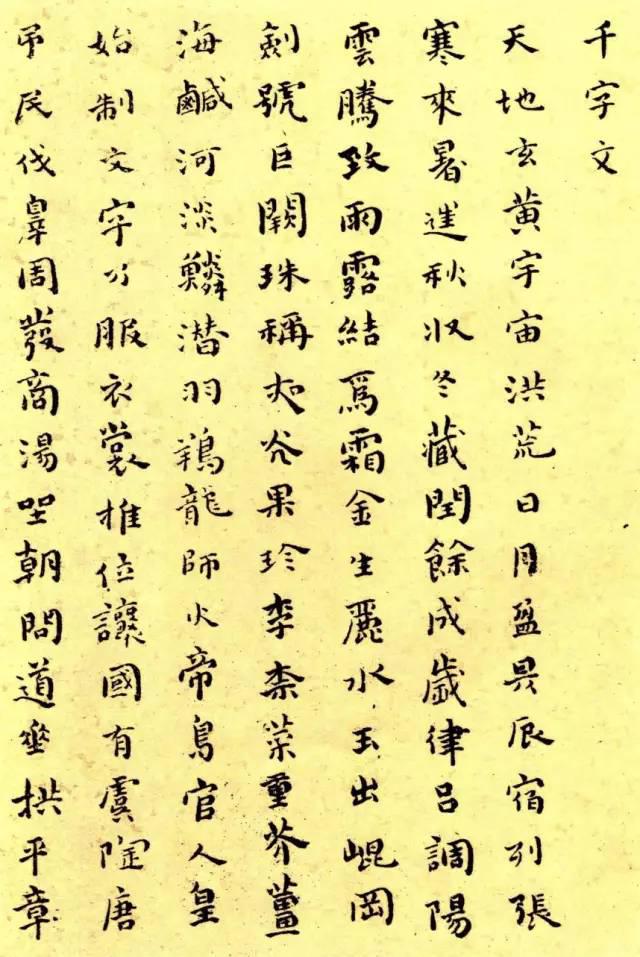 千字文
天地玄黄宇宙洪荒日月盈昃辰宿列張
寒來暑往秋収冬藏閏餘成歲律吕調陽
雲騰致雨露結爲霜金生麗水玉出崐岡
劍號巨闕珠稱夜光果珍李柰菜重芥薑
海鹹河淡鱗潛羽翔龍師火帝鳥官人皇
始制文字乃服衣裳推位讓國有虞陶唐
弔民伐辠周發商湯坐朝問道垂拱平章